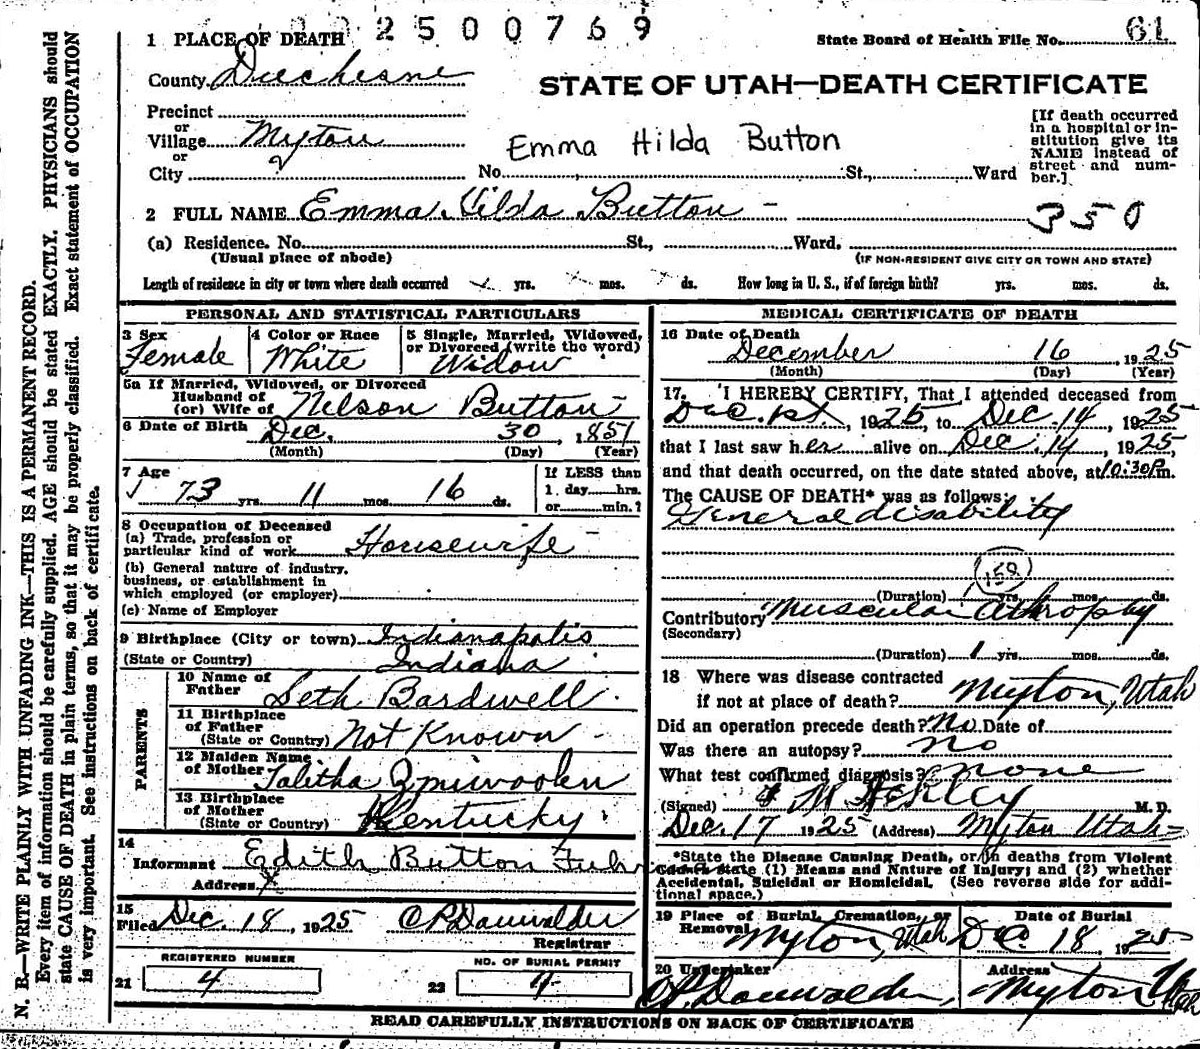 2500769
1 PLACE OF DEATH
State Board of Health File No. 61
County Duchesne
STATE OF UTAH—DEATH CERTIFICATE
Precinct
or
Village Myton
or
City
Emma Hilda Button
No. St., Ward
[If death occurred
in a hospital or in-
stitution give its
NAME instead of
street and num-
ber.]
2 FULL NAME Emma Hilda Button - 350
(a) Residence. No. St., Ward.
(Usual place of abode)
(IF NON-RESIDENT GIVE CITY OR TOWN AND STATE)
Length of residence in city or town where death occurred yrs. mos. ds. How long in U. S., if of foreign birth? yrs. mos. ds.
PERSONAL AND STATISTICAL PARTICULARS
3 Sex
Female
4 Color or Race
White
5 Single, Married, Widowed,
or Divorced (write the word)
Widow
5a If Married, Widowed, or Divorced
Husband of
(or) Wife of Nelson Button
6 Date of Birth Dec. 30, 1851
(Month) (Day) (Year)
7 Age
73 yrs. 11 mos. 16 ds.
If LESS than
1 day hrs.
or min.?
8 Occupation of Deceased
(a) Trade, profession or
particular kind of work Housewife
(b) General nature of industry,
business, or establishment in
which employed (or employer)
(c) Name of Employer
9 Birthplace (City or town) Indianapolis
(State or Country) Indiana
PARENTS
10 Name of
Father Seth Bardwell
11 Birthplace
of Father
(State or Country) Not Known
12 Maiden Name
of Mother Talitha
13 Birthplace
of Mother
(State or Country) Kentucky
14
Informant Edith Button
Address X
15
Filed Dec. 18, 1925 C P Dauwalder
Registrar
REGISTERED NUMBER
21 4
NO. OF BURIAL PERMIT
22 4
MEDICAL CERTIFICATE OF DEATH
16 Date of Death
December 16, 1925
(Month) (Day) (Year)
17. I HEREBY CERTIFY, That I attended deceased from
Dec. 1st, 1925, to Dec. 14, 1925
that I last saw her alive on Dec. 14, 1925,
and that death occurred, on the date stated above, at 10:30 P.m.
The CAUSE OF DEATH* was as follows:
General disability
(Duration) yrs. mos. ds.
Contributory Muscular Athrophy
(Secondary)
(Duration) 1 yrs. mos. ds.
18 Where was disease contracted
if not at place of death? Myton, Utah
Did an operation precede death? No Date of
Was there an autopsy? no
What test confirmed diagnosis? none
(Signed) M. D.
Dec. 17 1925 (Address) Myton Utah
*State the Disease Causing Death, or in deaths from Violent
Causes state (1) Means and Nature of Injury; and (2) whether
Accidental, Suicidal or Homicidal. (See reverse side for addi-
tional space.)
19 Place of Burial, Cremation, or
Removal Myton, Utah
Date of Burial
Dec. 18, 1925
20 Undertaker
C P. Dauwalder,
Address
Myton Utah
READ CAREFULLY INSTRUCTIONS ON BACK OF CERTIFICATE
N. B.—WRITE PLAINLY WITH UNFADING INK—THIS IS A PERMANENT RECORD.
Every item of information should be carefully supplied. AGE should be stated EXACTLY. PHYSICIANS should
state CAUSE OF DEATH in plain terms, so that it may be properly classified. Exact statement of OCCUPATION
is very important. See instructions on back of certificate.